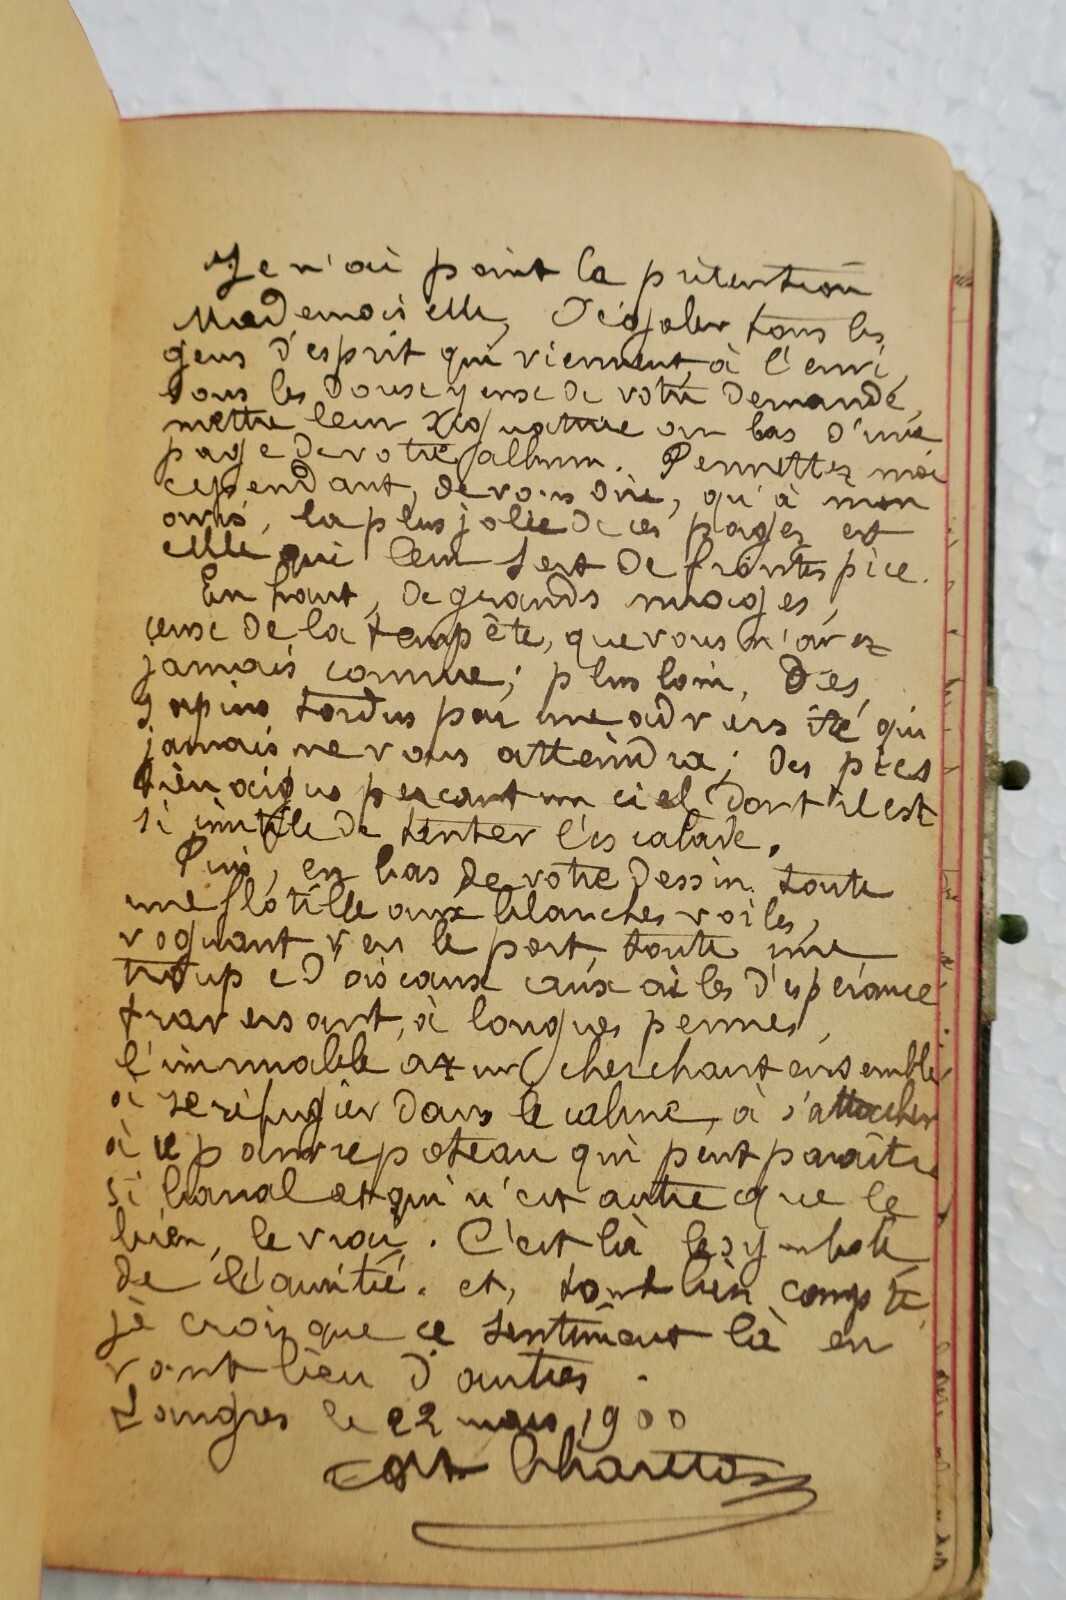 Je n'ai point la prétention
Mademoiselle, d'égaler tous les
gens d'esprit qui viennent, à l'envi,
sous les doux yeux de votre demande,
mettre leur signature au bas d'une
page de votre album. Permettez moi
cependant, de vous dire, qu'à mon
avis, la plus jolie de ces pages est
celle qui leur sert de frontispice.
En haut, de grands nuages,
ceux de la tempête, que vous n'avez
jamais connue; plus loin, des
sapins tordus par une adversité qui
jamais ne vous atteindra; des pics
bien aigus perçant un ciel dont il est
si inutile de tenter l'escalade.
Puis, en bas de votre dessin, toute
une flotille aux blanches voiles,
voguant vers le port, toute une
troupe d'oiseaux aux ailes d'espérance
traversant, à longues pennes,
l'immuable azur cherchant ensemble
à se réfugier dans le calme, à s'attacher
à ce pauvre poteau qui peut paraître
si banal et qui n'est autre que le
bien, le vrai. C'est là le symbole
de l'amitié. et, tout bien compté,
je crois que ce sentiment là en
vaut bien d'autres.
Langres le 22 mars 1900